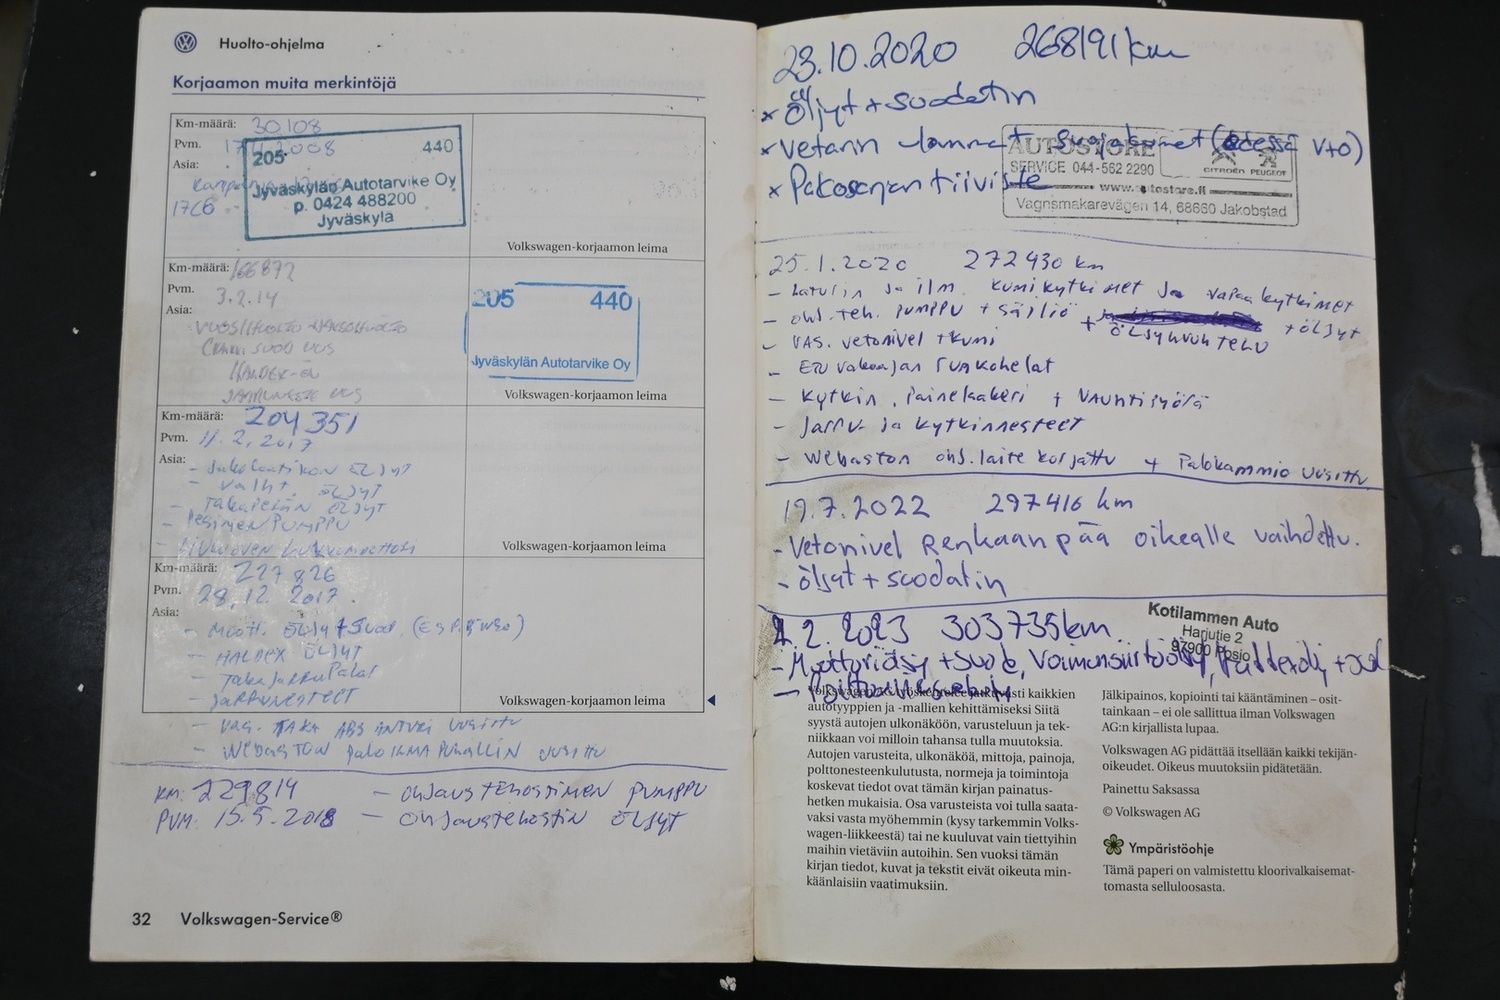 Huolto-ohjelma
Korjaamon muita merkintöjä
Km-määrä: 30.108
Pvm. 2008
Asia:
17C6
205 440
Jyväskylän Autotarvike Oy
p. 0424 488200
Jyväskylä
Volkswagen-korjaamon leima
Km-määrä: 166872
Pvm. 3.2.14
Asia:
VUOSIHUOLTO
205 440
Jyväskylän Autotarvike Oy
Volkswagen-korjaamon leima
Km-määrä: 204 351
Pvm. 11.2.2017
Asia:
- Jakolaatikon ÖLJYT
- Vaiht. ÖLJYT
- Takaperän ÖLJYT
- PUMPPU
Volkswagen-korjaamon leima
Km-määrä: 227 826
Pvm. 28.12.2017.
Asia:
- Moott. ÖLJYT + Suod.
- HALDEX ÖLJYT
- Takajarrupalat
- Jarrunesteet
Volkswagen-korjaamon leima
- Vas. TAKA ABS ANTURI UUSITTU
- WEBASTON PALOILMA PUHALLIN UUSITTU
KM: 229814 - OHJAUSTEHOSTIMEN PUMPPU
PVM: 15.5.2018 - OHJAUSTEHOSTIN ÖLJYT
32 Volkswagen-Service®
23.10.2020 268191 km
× Öljyt + suodatin
× Vetarin suojakumet (edessä V+O)
× Pakosarjan tiiviste
AUTOSTORE
SERVICE 044-562 2290
CITROËN PEUGEOT
www.autostore.fi
Vagnsmakarevägen 14, 68660 Jakobstad
25.1.2020 272430 km
- Laturin ja ilm. kumikytkimet ja vapaakytkimet
- ohj. teh. PUMPPU + säiliö + ÖLJYHUUHTELU + ÖLJYT
- VAS. vetonivel + kumi
- ETU vakaajan
- Kytkin, painelaakeri + vauhtipyörä
- Jarru- ja kytkinnesteet
- Webaston ohj. laite korjattu + Palokammio uusittu
19.7.2022 297416 km
- Vetonivel Renkaanpää oikealle vaihdettu.
- öljyt + suodatin
2.2023 303735km
- Moottoriöljy + suod, Voimansiirtoöljy,
Kotilammen Auto
Harjutie 2
97900 Posio
Volkswagen AG työskentelee jatkuvasti kaikkien
autotyyppien ja -mallien kehittämiseksi Siitä
syystä autojen ulkonäköön, varusteluun ja tek-
niikkaan voi milloin tahansa tulla muutoksia.
Autojen varusteita, ulkonäköä, mittoja, painoja,
polttonesteenkulutusta, normeja ja toimintoja
koskevat tiedot ovat tämän kirjan painatus-
hetken mukaisia. Osa varusteista voi tulla saata-
vaksi vasta myöhemmin (kysy tarkemmin Volks-
wagen-liikkeestä) tai ne kuuluvat vain tiettyihin
maihin vietäviin autoihin. Sen vuoksi tämän
kirjan tiedot, kuvat ja tekstit eivät oikeuta min-
käänlaisiin vaatimuksiin.
Jälkipainos, kopiointi tai kääntäminen – osit-
tainkaan – ei ole sallittua ilman Volkswagen
AG:n kirjallista lupaa.
Volkswagen AG pidättää itsellään kaikki tekijän-
oikeudet. Oikeus muutoksiin pidätetään.
Painettu Saksassa
© Volkswagen AG
Ympäristöohje
Tämä paperi on valmistettu kloorivalkaisemat-
tomasta selluloosasta.